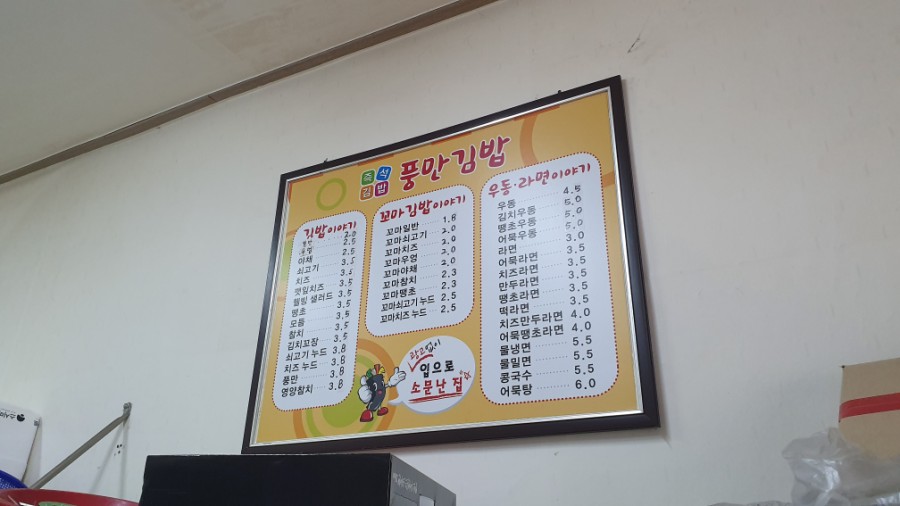 즉석
김밥
풍만김밥
김밥이야기
일반 2.0
2.5
야채 2.5
쇠고기 3.5
치즈 3.5
깻잎치즈 3.5
웰빙 샐러드 3.5
땡초 3.5
모듬 3.5
참치 3.5
김치꼬장 3.5
쇠고기 누드 3.8
치즈 누드 3.8
풍만 3.8
영양참치 3.8
꼬마김밥이야기
꼬마일반 1.8
꼬마쇠고기 2.0
꼬마치즈 2.0
꼬마우엉 2.0
꼬마야채 2.0
꼬마참치 2.3
꼬마땡초 2.3
꼬마쇠고기 누드 2.5
꼬마치즈 누드 2.5
우동·라면이야기
우동 4.5
김치우동 5.0
땡초우동 5.0
어묵우동 5.0
라면 3.0
어묵라면 3.5
치즈라면 3.5
만두라면 3.5
땡초라면 3.5
떡라면 3.5
치즈만두라면 4.0
어묵땡초라면 4.0
물냉면 5.5
물밀면 5.5
콩국수 5.5
어묵탕 6.0
광고없이
입으로
소문난 집